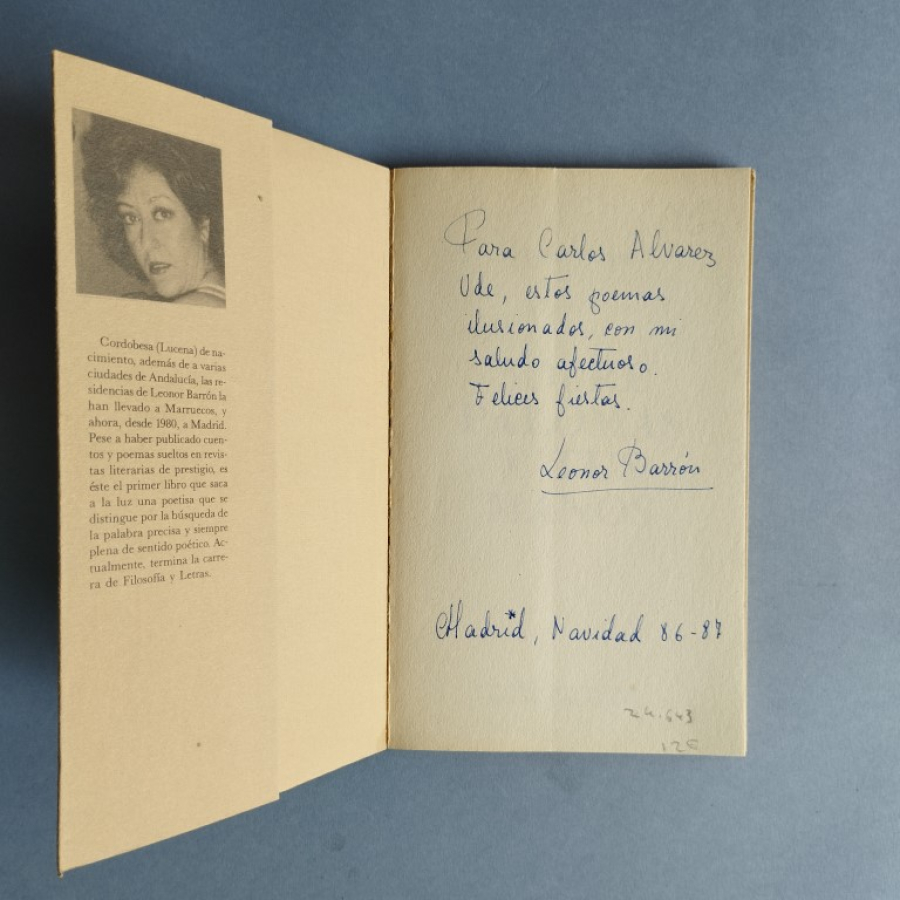 Cordobesa (Lucena) de na-
cimiento, además de a varias
ciudades de Andalucía, las re-
sidencias de Leonor Barrón la
han llevado a Marruecos, y
ahora, desde 1980, a Madrid.
Pese a haber publicado cuen-
tos y poemas sueltos en revis-
tas literarias de prestigio, es
éste el primer libro que saca
a la luz una poetisa que se
distingue por la búsqueda de
la palabra precisa y siempre
plena de sentido poético. Ac-
tualmente, termina la carre-
ra de Filosofía y Letras.
Para Carlos Alvarez
Ude, estos poemas
ilusionados, con mi
saludo afectuoso.
Felices fiestas.
Leonor Barrón
Madrid, Navidad 86-87
24.643
12€